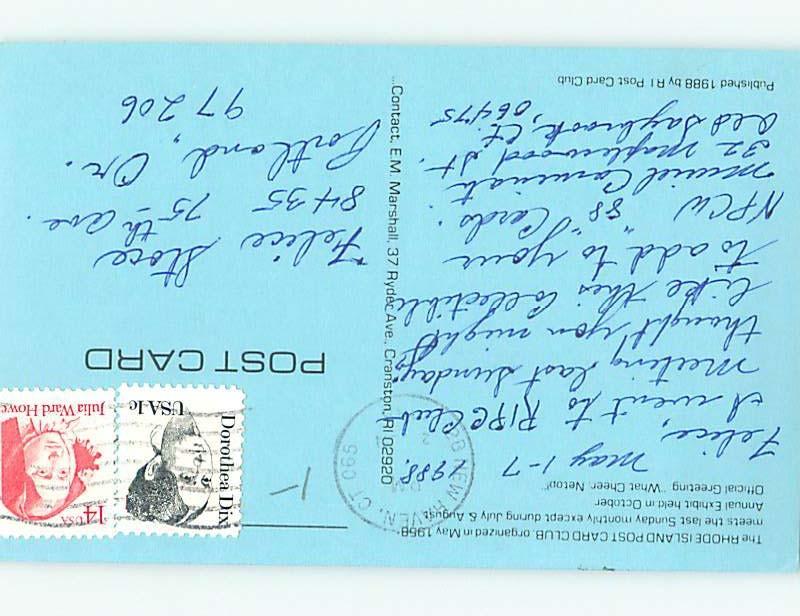 The RHODE ISLAND POST CARD CLUB, organized in May 1958
meets the last Sunday monthly except during July & August.
Annual Exhibit held in October
Official Greeting "What Cheer, Netop!"
May 1-7 1988.
Felice,
I went to RIPC Club
meeting last Sunday,
thought you might
like this Collectible
to add to your
NPCW "88" Cards.
Muriel
32 Maplewood St.
Old Saybrook, Ct.
06475
Published 1988 by R I Post Card Club
...Contact, E.M. Marshall, 37 Ryder Ave., Cranston, RI 02920
NEW HAVEN, CT 065
PM
1988
POST CARD
Felice Stace
8435 75th Ave.
Portland, Or.
97206
1-
Dorothea Dix
USA 1c
14
USA
Julia Ward Howe